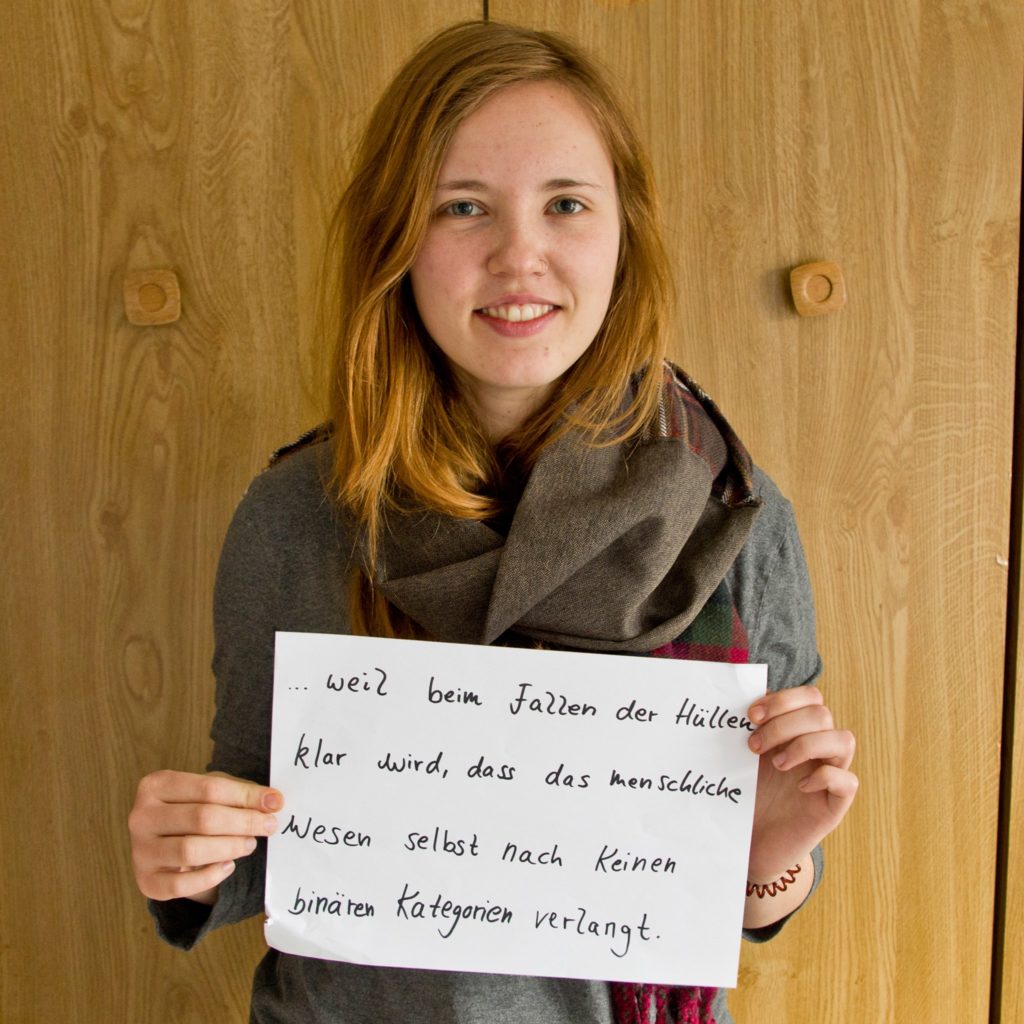 ... weil beim Fallen der Hüllen
klar wird, dass das menschliche
Wesen selbst nach keinen
binären Kategorien verlangt.